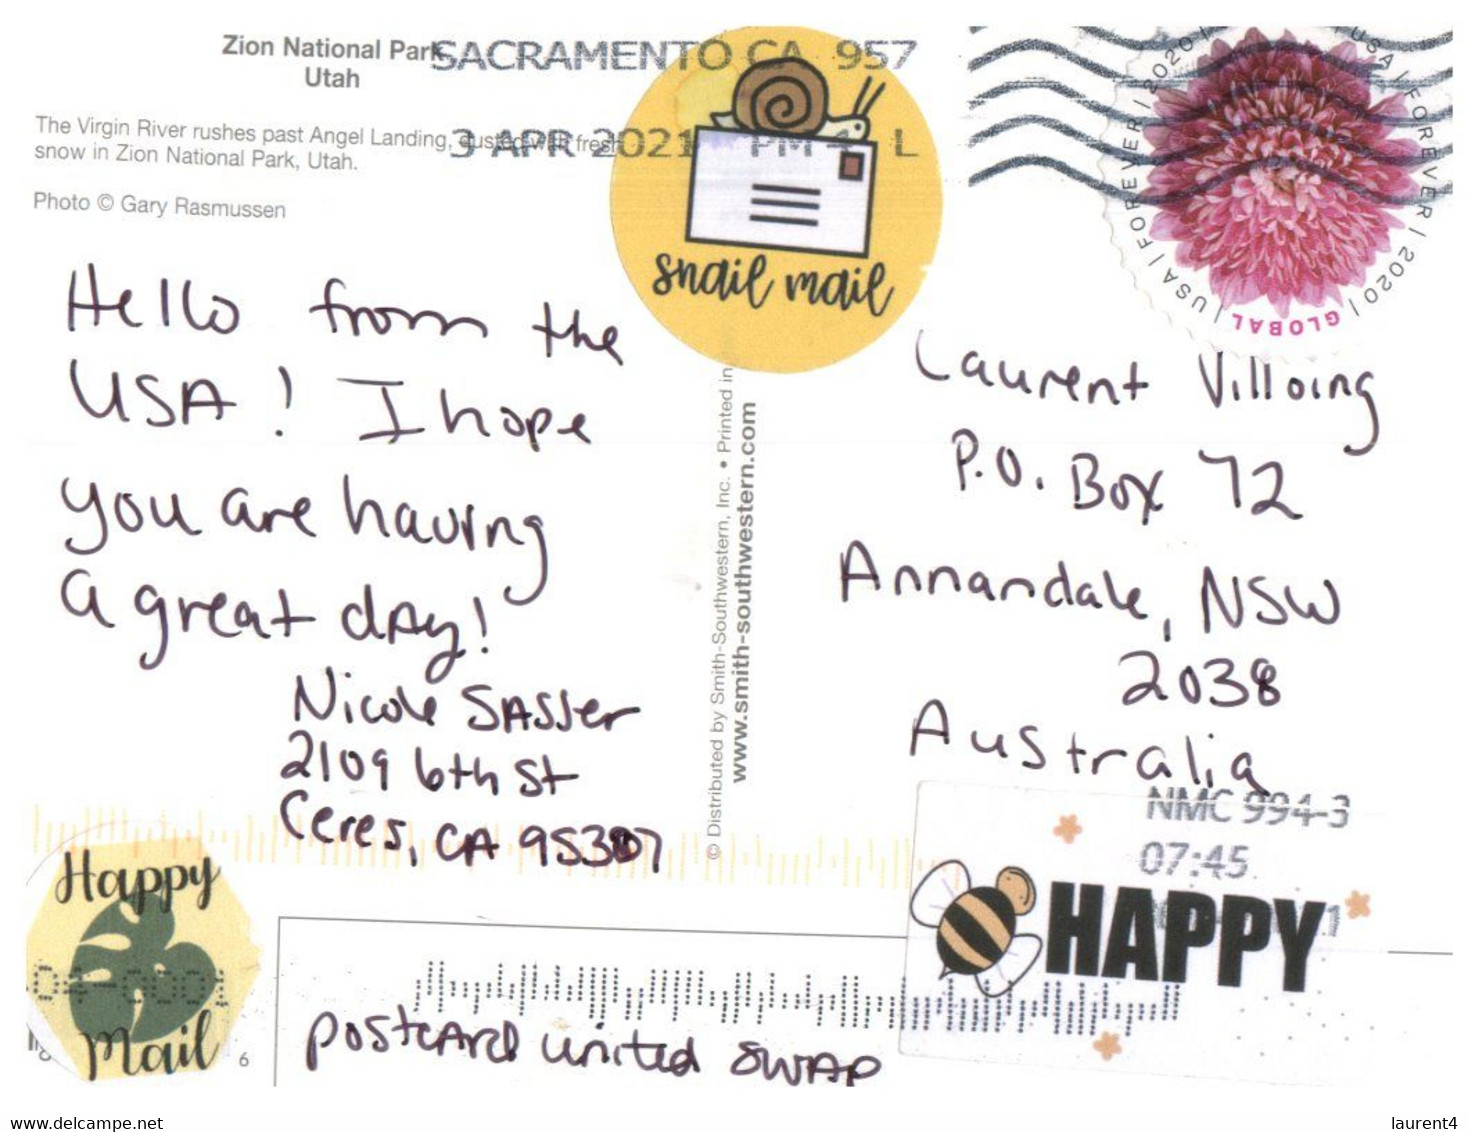 Zion National Park
Utah
SACRAMENTO CA 957
3 APR 2021 PM 4 L
The Virgin River rushes past Angel Landing, dusted with fresh
snow in Zion National Park, Utah.
Photo © Gary Rasmussen
snail mail
USA | FOREVER | 2020 | USA | FOREVER | 2020 | GLOBAL |
Hello from the
USA! I hope
you are having
a great day!
Nicole Sasser
2109 6th St
Ceres, CA 95307
© Distributed by Smith-Southwestern, Inc. • Printed in
www.smith-southwestern.com
Laurent Villoing
P.O. Box 72
Annandale, NSW
2038
Australia
NMC 994-3
07:45
BEE HAPPY
Happy
Mail
6
postcard united swap
laurent4